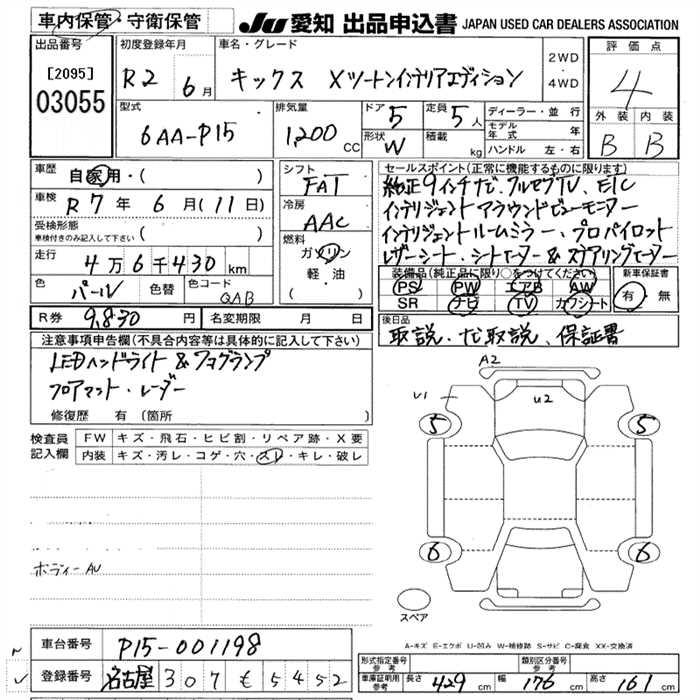 車内保管・守衛保管
JU 愛知 出品申込書 JAPAN USED CAR DEALERS ASSOCIATION
出品番号
[2095]
03055
初度登録年月
R2 6月
車名・グレード
キックス Xツートンインテリアエディション
2WD
・
4WD
評価点
4
外装 内装
B B
型式
6AA-P15
排気量
1,200 CC
ドア 5
形状 W
定員 5人
積載 kg
ディーラー・並行
モデル年式 年
ハンドル 左・右
車歴
自家用・( )
車検
R7年 6月(11日)
受検形態
車検付きのみ記入して下さい ( )
走行
4万6千430km
色
パール
色替
色コード
QAB
シフト
FAT
冷房
AAC
燃料
ガソリン
軽・油
( )
セールスポイント(正常に機能するものに限ります)
純正9インチナビ、フルセグTV、ETC
インテリジェントアラウンドビューモニター
インテリジェントルームミラー、プロパイロット
レザーシート、シートヒーター&ステアリングヒーター
装備品(純正品に限り○をつけてください)
PS PW エアB AW
SR ナビ TV カワシート
新車保証書
有・無
R券 9,830円 名変期限 月 日
後日品
取説、ナビ取説、保証書
注意事項申告欄(不具合内容等は具体的に記入して下さい)
LEDヘッドライト&フォグランプ
フロアマット・レーダー
修復歴 有(箇所 )
検査員
記入欄
FW キズ・飛石・ヒビ割・リペア跡・X要
内装 キズ・汚レ・コゲ・穴・スレ・キレ・破レ
ボディーAU
A2
U1
U2
5 5
6 6
スペア
A-キズ E-エクボ U-凹み W-補修跡 S-サビ C-腐食 XX-交換済
車台番号 P15-001198
登録番号 名古屋 307 も 5452
形式指定番号
参考
類別区分番号
参考
車庫証明用
参考
長さ 429cm 幅 176cm 高さ 161cm